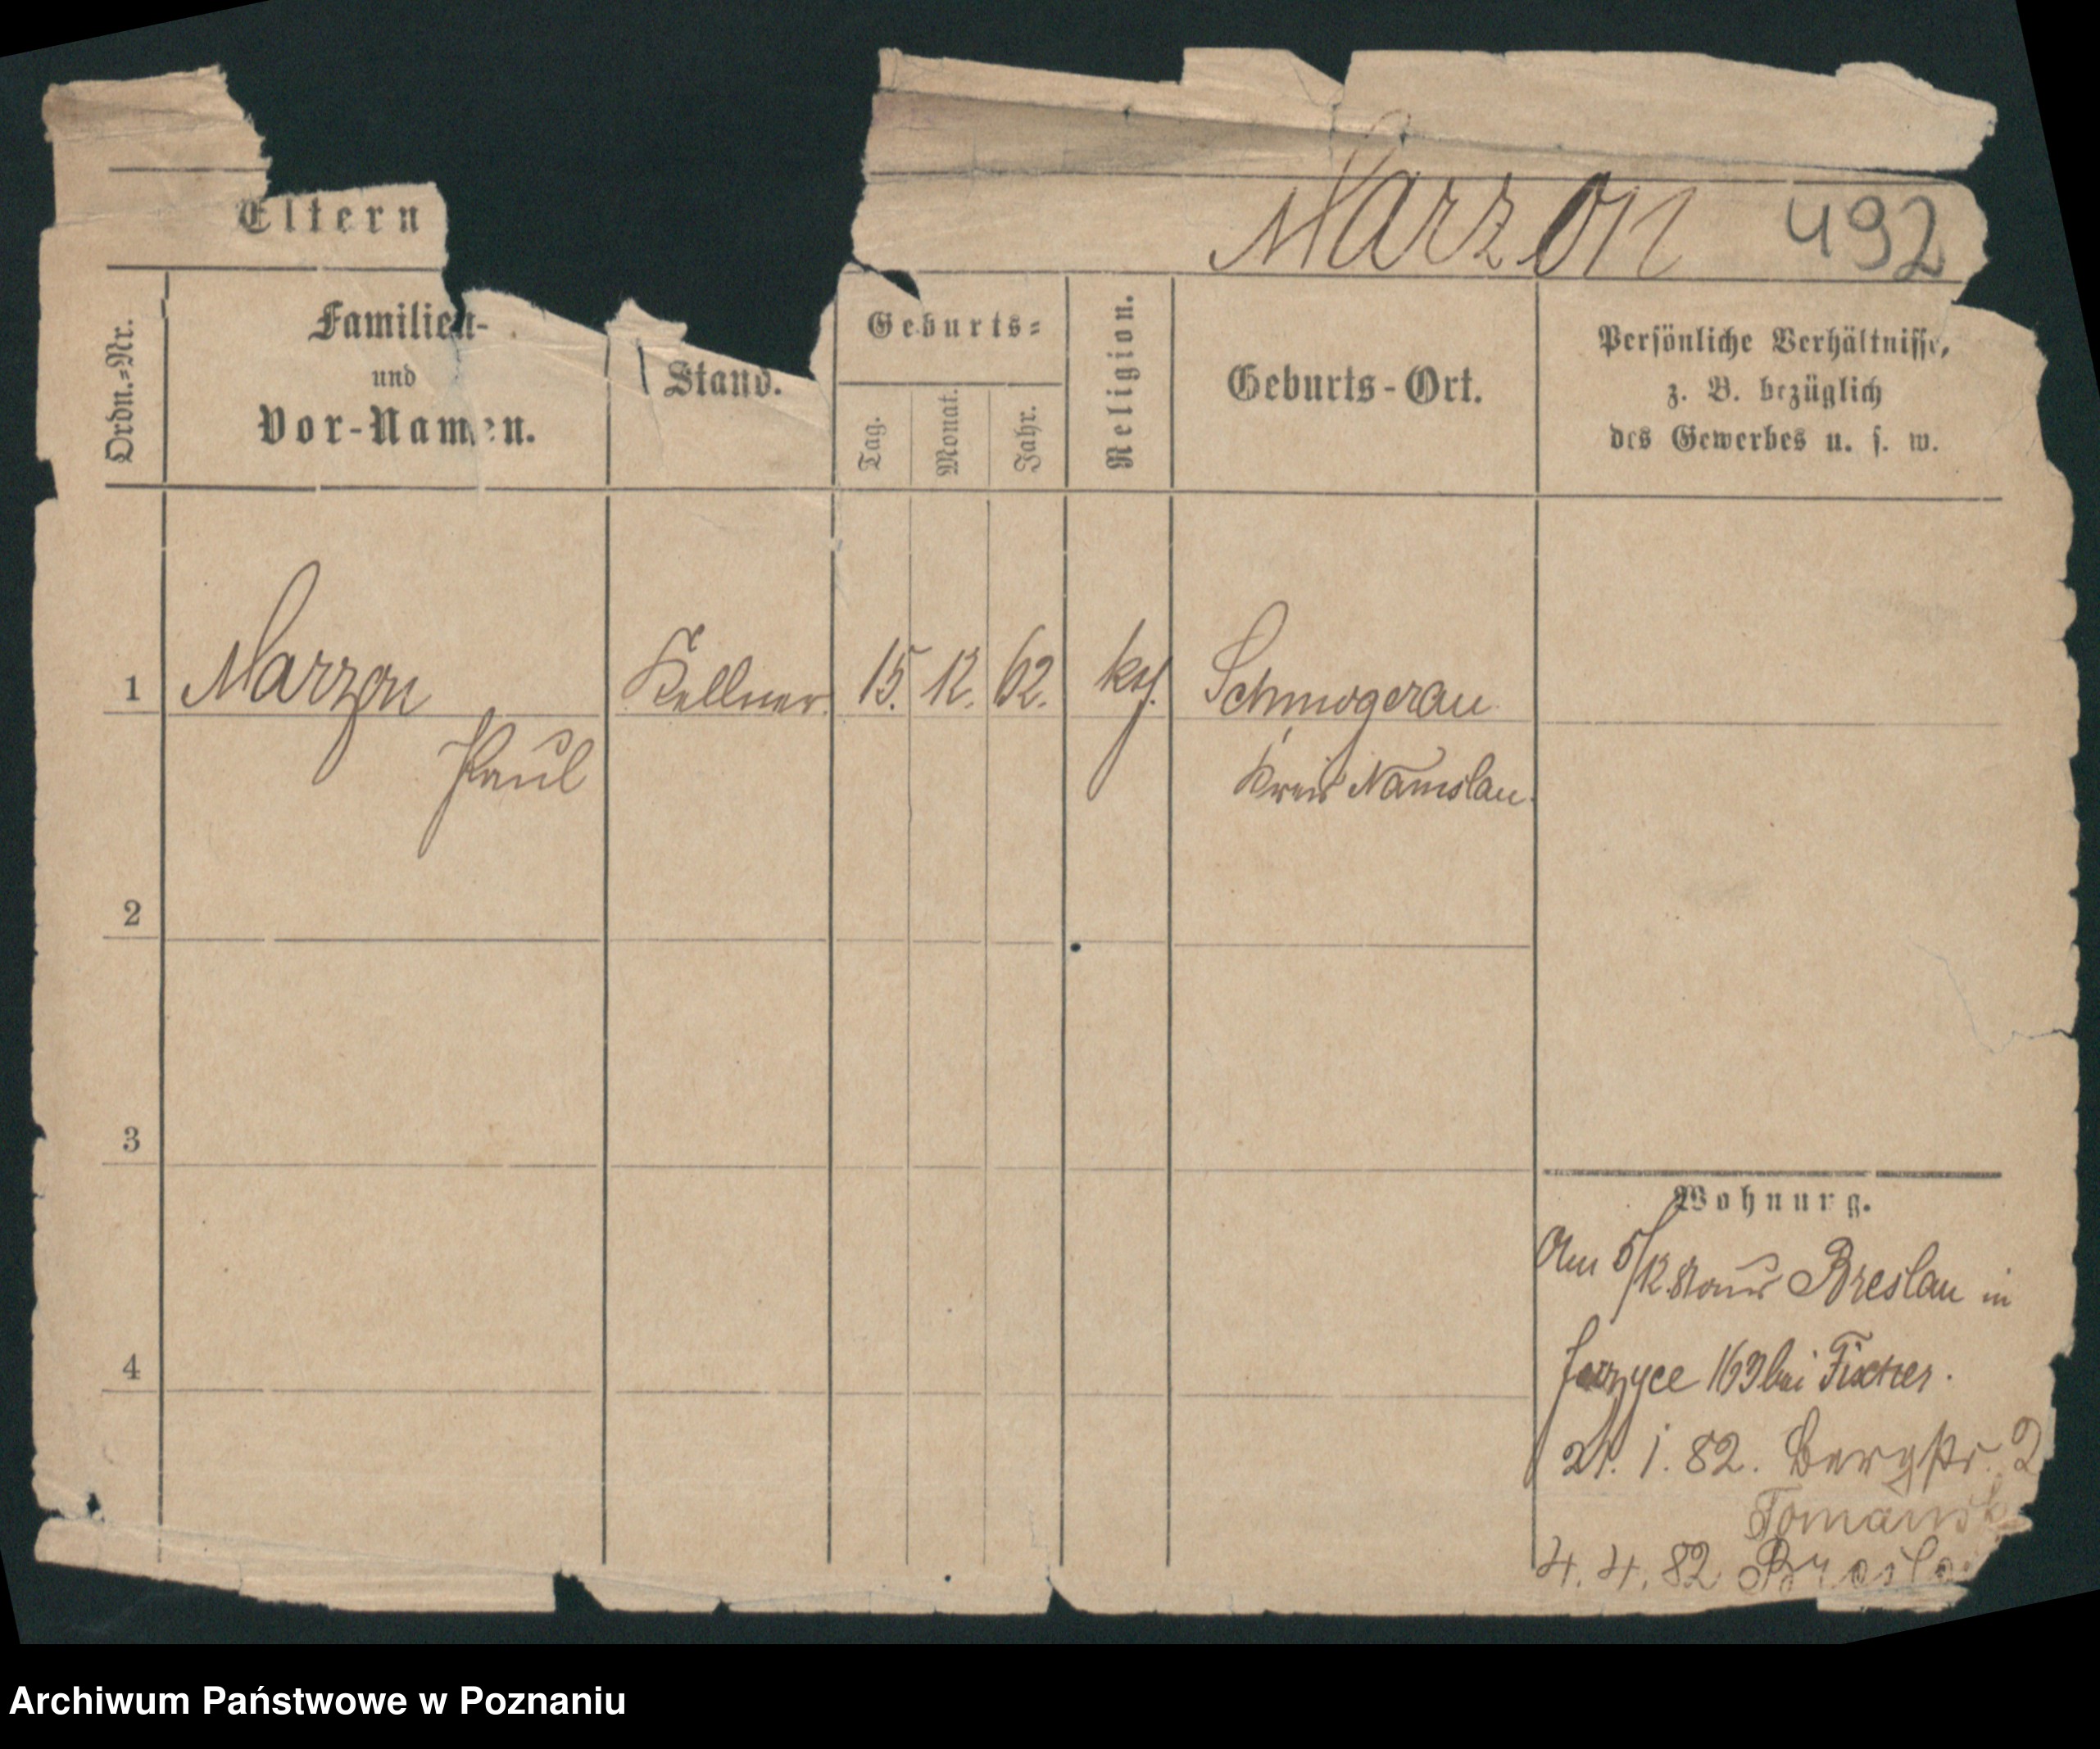 Marzon 492
Eltern
Ordn.-Nr.
Familien-
und
Vor-Namen.
Stand.
Geburts-
Tag.
Monat.
Jahr.
Religion.
Geburts-Ort.
Persönliche Verhältnisse,
z. B. bezüglich
des Gewerbes u. s. w.
1 Marzon Kellner 15. 12. 62. kth. Schmogerau
Paul Kreis Namslau.
2
3
4
Wohnung.
Am 5/12.81 aus Breslau in
Jerzyce 163 bei Fischer.
21. 1. 82. Bergstr. 2
Tomansk
4. 4. 82 Breslau
Archiwum Państwowe w Poznaniu